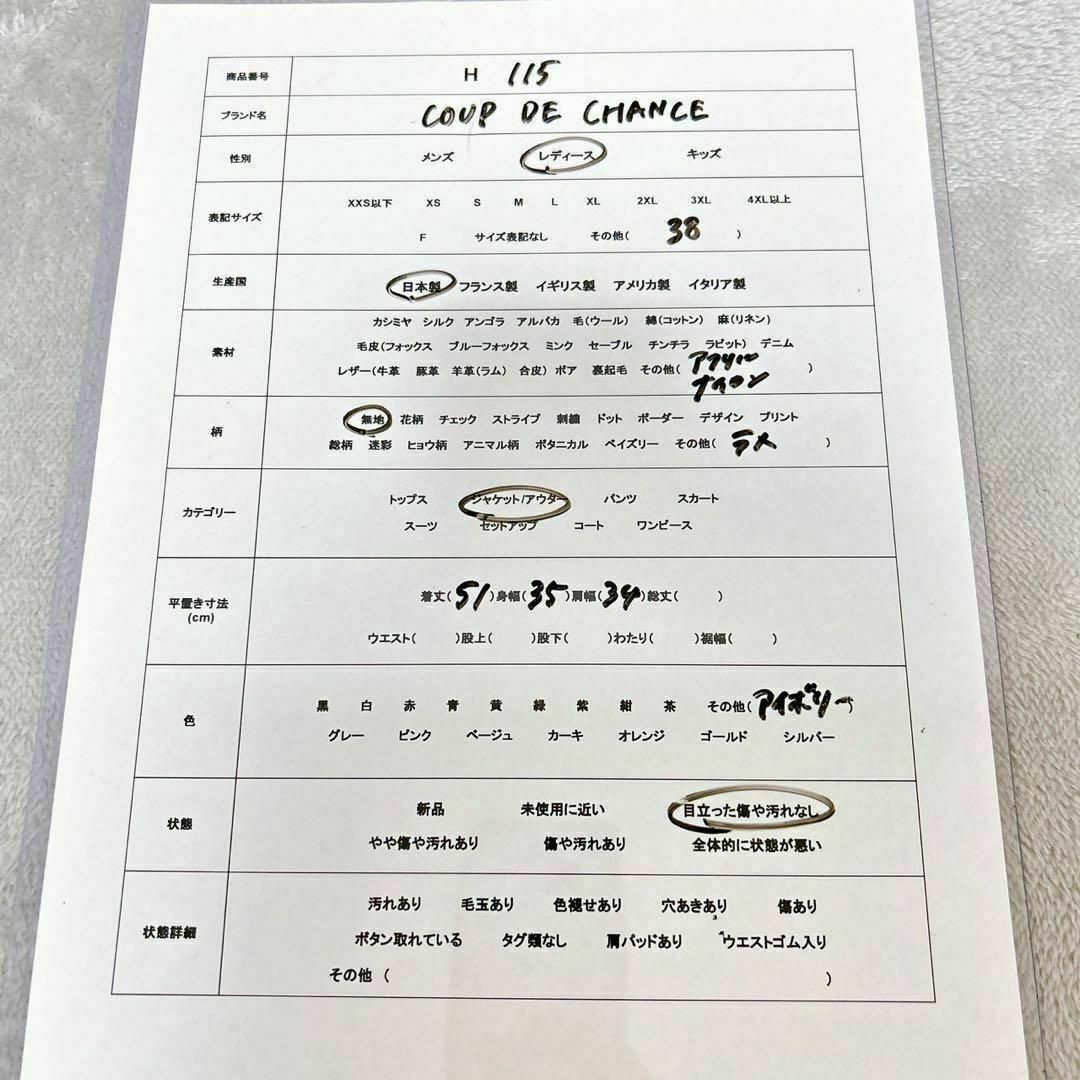 商品番号 H 115
ブランド名 COUP DE CHANCE
性別 メンズ レディース キッズ
表記サイズ
XXS以下 XS S M L XL 2XL 3XL 4XL以上
F サイズ表記なし その他( 38 )
生産国 日本製 フランス製 イギリス製 アメリカ製 イタリア製
素材
カシミヤ シルク アンゴラ アルパカ 毛(ウール) 綿(コットン) 麻(リネン)
毛皮(フォックス ブルーフォックス ミンク セーブル チンチラ ラビット) デニム
レザー(牛革 豚革 羊革(ラム) 合皮) ボア 裏起毛 その他( アクリル )
ナイロン
柄
無地 花柄 チェック ストライプ 刺繍 ドット ボーダー デザイン プリント
総柄 迷彩 ヒョウ柄 アニマル柄 ボタニカル ペイズリー その他( ラメ )
カテゴリー
トップス ジャケット/アウター パンツ スカート
スーツ セットアップ コート ワンピース
平置き寸法
(cm)
着丈( 51 )身幅( 35 )肩幅( 34 )総丈( )
ウエスト( )股上( )股下( )わたり( )裾幅( )
色
黒 白 赤 青 黄 緑 紫 紺 茶 その他( アイボリー )
グレー ピンク ベージュ カーキ オレンジ ゴールド シルバー
状態
新品 未使用に近い 目立った傷や汚れなし
やや傷や汚れあり 傷や汚れあり 全体的に状態が悪い
状態詳細
汚れあり 毛玉あり 色褪せあり 穴あきあり 傷あり
ボタン取れている タグ類なし 肩パッドあり ウエストゴム入り
その他 ( )